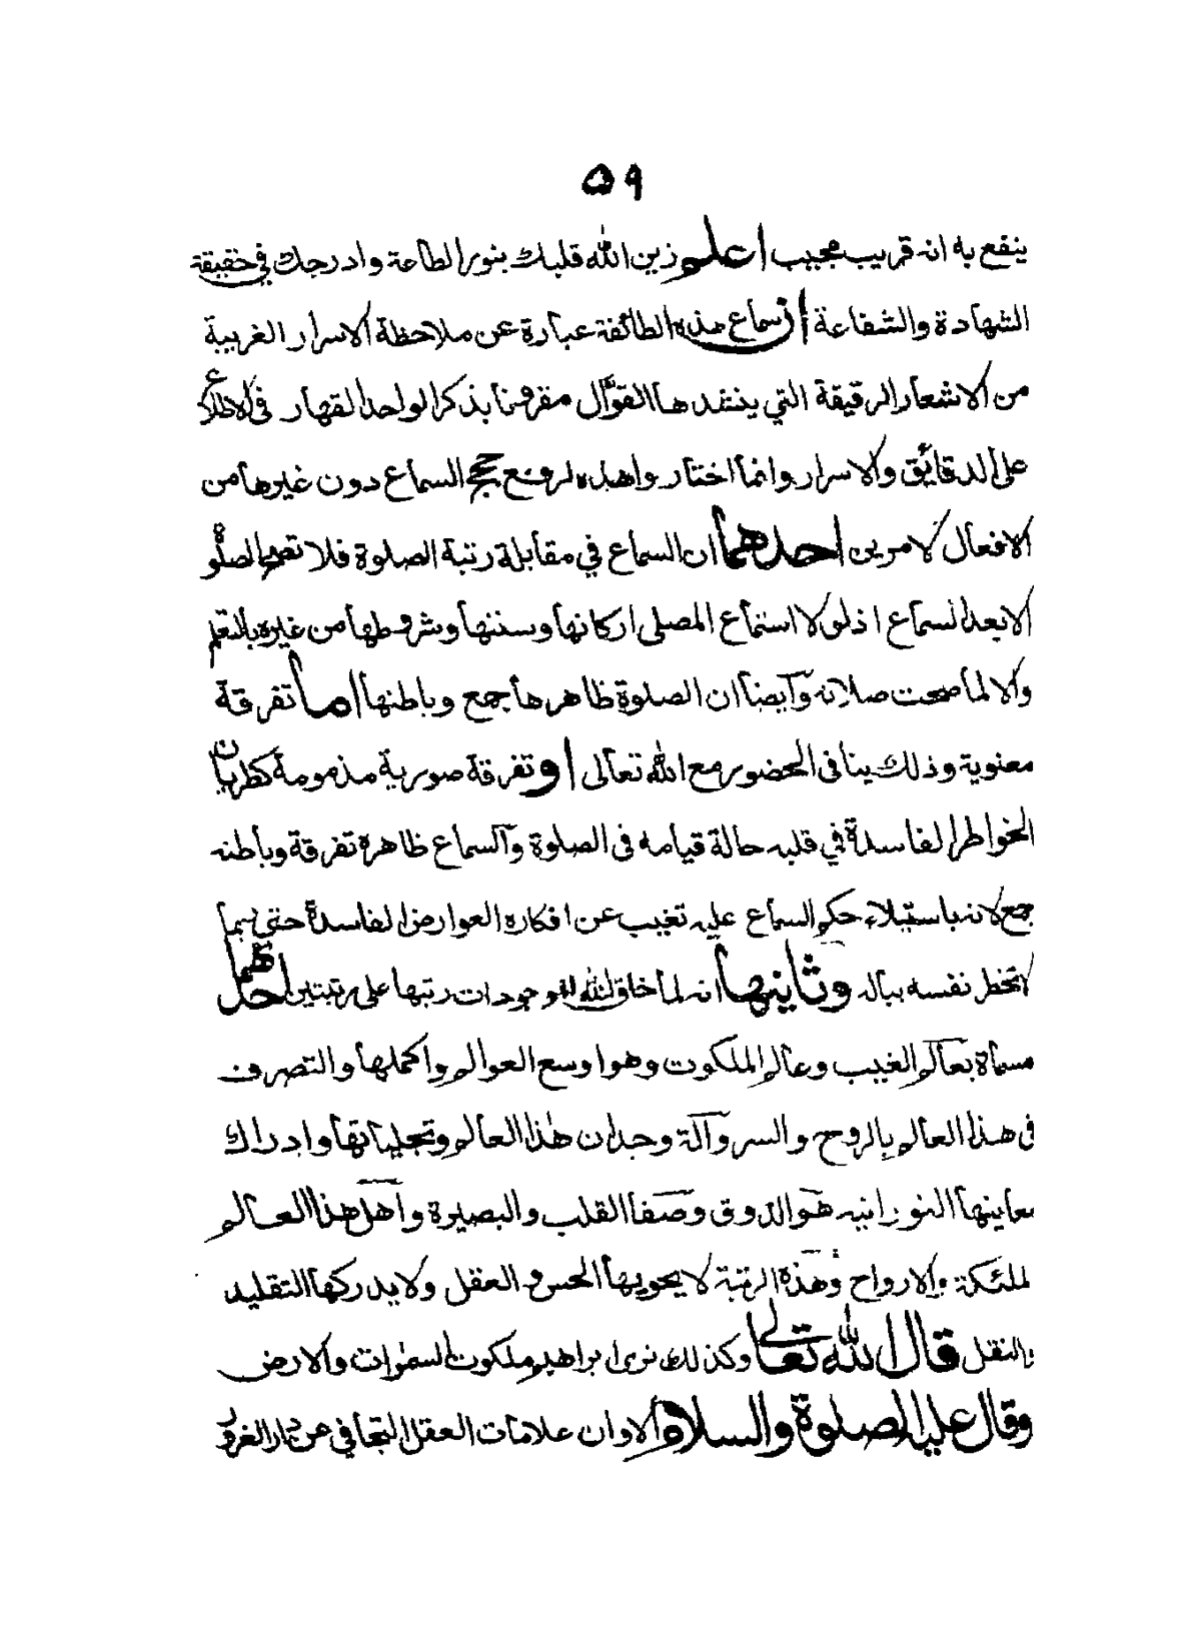 ٥٩
ينفع به انه قريب مجيب اعلم زين الله قلبك بنور الطاعة وادرجك في حقيقة
الشهادة والشفاعة ان سماع هذه الطائفة عبارة عن ملاحظة الاسرار الغريبة
من الاشعار الرقيقة التي ينشدها القوّال مقرونا بذكر الواحد القهار في الاطلاع
على الدقائق والاسرار وانما اختار واهذه لرفع حجج السماع دون غيرها من
الافعال لامرين احدهما ان السماع في مقابلة رتبة الصلوة فلا تصح الصلوة
الا بعد السماع اذ لولا استماع المصلى اركانها وسننها وشروطها من غيره بالتعلم
والا لما صحت صلاته وآيضا ان الصلوة ظاهرها جمع وباطنها اما تفرقة
معنوية وذلك ينافى الحضور مع الله تعالى او تفرقة صورية مذمومة كطريان
الخواطر الفاسدة في قلبه حالة قيامه فى الصلوة وآلسماع ظاهره تفرقة وباطنه
جمع لانه باستيلاء حكم السماع عليه تغيب عن افكاره العوارض الفاسدة حتى
لاتخطر نفسه بباله وثانيها انه لما خلق الله الموجودات رتبها على مرتبتين احدهما
مسماة بعالم الغيب وعالم الملكوت وهو اوسع العوالم واكملها والتصرف
فى هذا العالم بالروح والسر وآلة وجدان هذا العالم وتجلياتها وادراك
معاينها النورانيه هو الذوق وصفا القلب والبصيرة وآهل هذا العالم
لملئكة والارواح وهذه الرتبة لا يحويها الحس والعقل ولا يدركها التقليد
والنقل قال الله تعالى وكذلك نرى ابراهيم ملكوت السموات والارض
وقال عليه الصلوة والسلام ألا وان علامات العقل التجافي عن دار الغرور